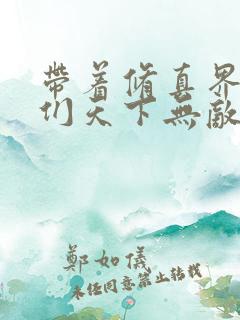 帶着脩真界
们天下無敵
鄭如儀
未经同意禁止转载